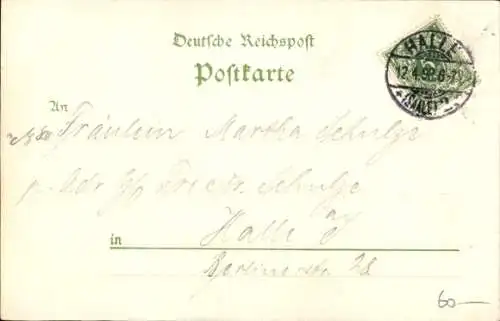 Deutsche Reichspost
Postkarte
HALLE
12.4.98.6-7
(SAALE)
An
Fräulein Martha Schulze
Schulze
in Halle
Berlinerstr. 28
60—